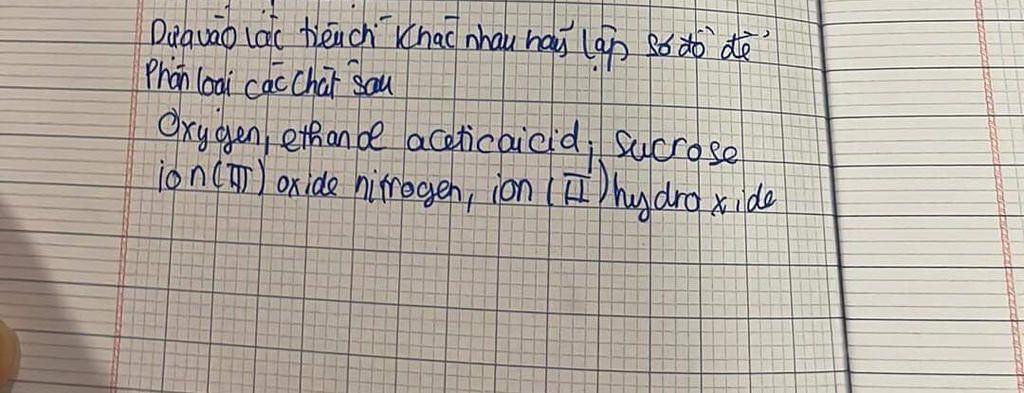 Dựa vào các tiêu chí khác nhau hãy lập sơ đồ để
Phân loại các chất sau
Oxygen, ethanol aceticaicid, sucrose
ion (III) oxide nitrogen, ion (II) hydroxide